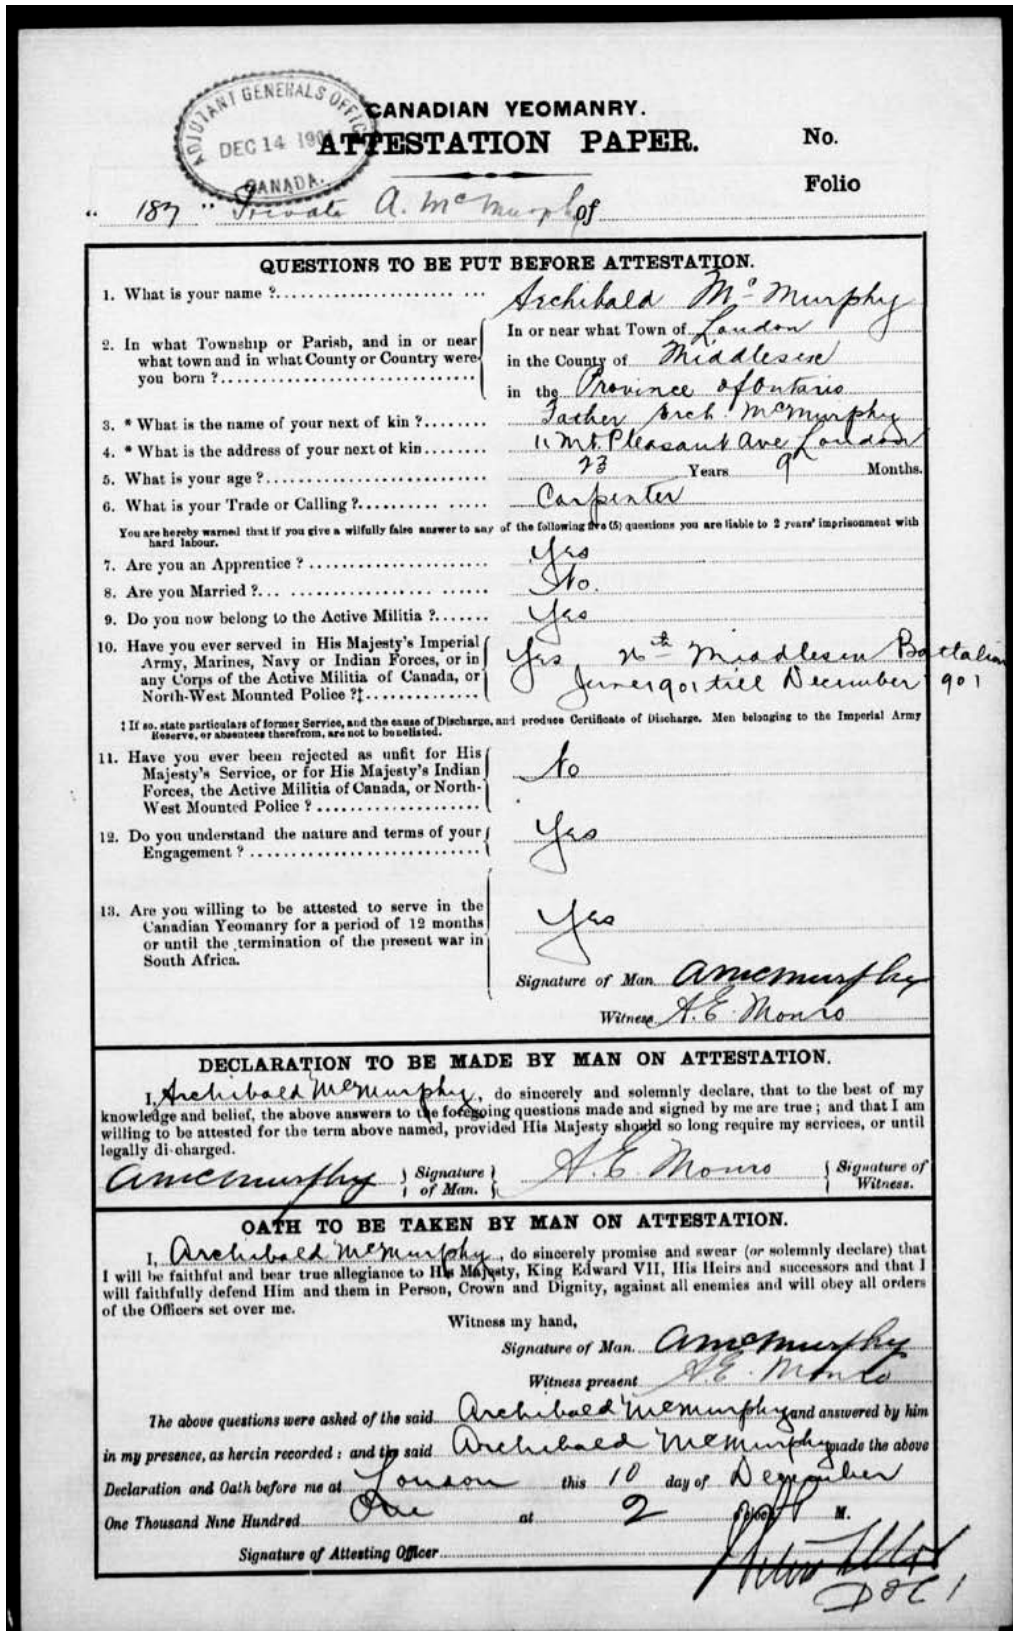 ADJUTANT GENERALS OFFICE
DEC 14 1901
CANADA.
CANADIAN YEOMANRY.
ATTESTATION PAPER.
No.
Folio
" 187 " Private A. McMurphy of
QUESTIONS TO BE PUT BEFORE ATTESTATION.
1. What is your name ? Archibald McMurphy
2. In what Township or Parish, and in or near what town and in what County or Country were you born ?
In or near what Town of London
in the County of Middlesex
in the Province of Ontario
3. * What is the name of your next of kin ? Father Arch. McMurphy
4. * What is the address of your next of kin 11 Mt. Pleasant Ave London
5. What is your age ? 23 Years 9 Months.
6. What is your Trade or Calling ? Carpenter
You are hereby warned that if you give a wilfully false answer to any of the following five (5) questions you are liable to 2 years' imprisonment with
hard labour.
7. Are you an Apprentice ? Yes
8. Are you Married ? No.
9. Do you now belong to the Active Militia ? Yes
10. Have you ever served in His Majesty's Imperial
Army, Marines, Navy or Indian Forces, or in
any Corps of the Active Militia of Canada, or
North-West Mounted Police ?‡
Yes 26th Middlesex Battalion
June 1901 till December 1901
‡ If so, state particulars of former Service, and the cause of Discharge, and produce Certificate of Discharge. Men belonging to the Imperial Army
Reserve, or absentees therefrom, are not to be enlisted.
11. Have you ever been rejected as unfit for His
Majesty's Service, or for His Majesty's Indian
Forces, the Active Militia of Canada, or North-
West Mounted Police ?
No
12. Do you understand the nature and terms of your
Engagement ?
Yes
13. Are you willing to be attested to serve in the
Canadian Yeomanry for a period of 12 months
or until the termination of the present war in
South Africa.
Yes
Signature of Man. AMcMurphy
Witness. A. E. Monro
DECLARATION TO BE MADE BY MAN ON ATTESTATION.
I, Archibald McMurphy, do sincerely and solemnly declare, that to the best of my
knowledge and belief, the above answers to the foregoing questions made and signed by me are true ; and that I am
willing to be attested for the term above named, provided His Majesty should so long require my services, or until
legally di-charged.
AMcMurphy } Signature of Man. { A. E. Monro { Signature of Witness.
OATH TO BE TAKEN BY MAN ON ATTESTATION.
I, Archibald McMurphy, do sincerely promise and swear (or solemnly declare) that
I will be faithful and bear true allegiance to His Majesty, King Edward VII, His Heirs and successors and that I
will faithfully defend Him and them in Person, Crown and Dignity, against all enemies and will obey all orders
of the Officers set over me.
Witness my hand,
Signature of Man. AMcMurphy
Witness present A. E. Monro
The above questions were asked of the said Archibald McMurphy and answered by him
in my presence, as herein recorded : and the said Archibald McMurphy made the above
Declaration and Oath before me at London this 10 day of December
One Thousand Nine Hundred One at 2 o'clock P M.
Signature of Attesting Officer
D O C 1